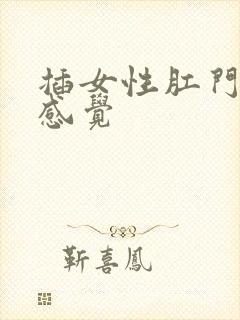 插女性肛門
感覺
靳喜鳳